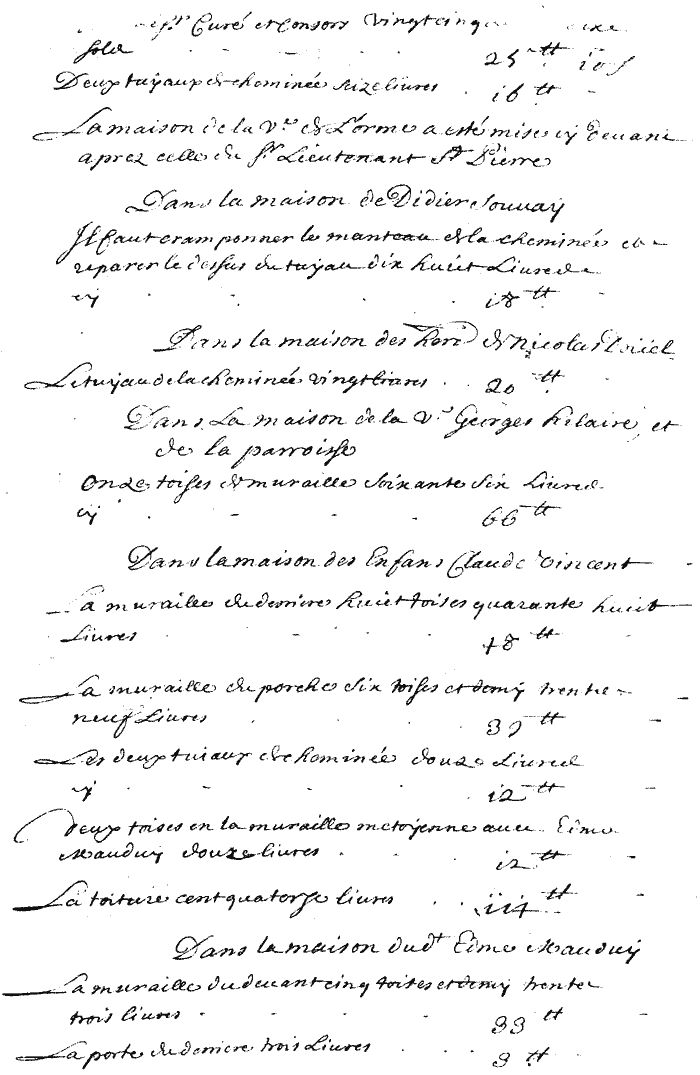 Sr. Curé et Consors vingtcinq
solz 25 tt 10 s
Deux tuyaux de cheminée seize livres 16 tt
La maison de la Ve. de Lorme a esté mise cy devant
aprez celle du Sr. Lieutenant St. Pierre
Dans la maison de Didier Souvay
Il faut cramponner le manteau de la cheminée et
reparer le dessus du tuyau dix huict Livres
cy 18 tt
Dans la maison des her. de Nicolas
Le tuyau de la cheminée vingt livres 20 tt
Dans La maison de la Ve. Georges hilaire, et
de la parroisse
Onze toises de muraille soixante six Livres
cy 66 tt
Dans la maison des Enfans Claude Vincent
La muraille du derriere huict toises quarante huict
Livres 48 tt
La muraille du porche six toises et demy trente
neuf Livres 39 tt
Les deux tuiaux de cheminée douze Livres
cy 12 tt
Deux toises en la muraille metoyenne avec Edme
Mauduy douze livres 12 tt
La toiture cent quatorse livres 114 tt
Dans la maison dudt. Edme Mauduy
La muraille du devant cinq toises et demy trente
trois livres 33 tt
La porte du derriere trois Livres 3 tt